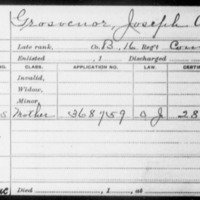 Grosvenor, Joseph
Late rank, Co. B, 16 Reg't Conn
Enlisted , 1 Discharged
CLASS. APPLICATION NO. LAW. CERTIF
Invalid,
Widow,
Minor,
Mother 368759 J 28
Died , 1 , at